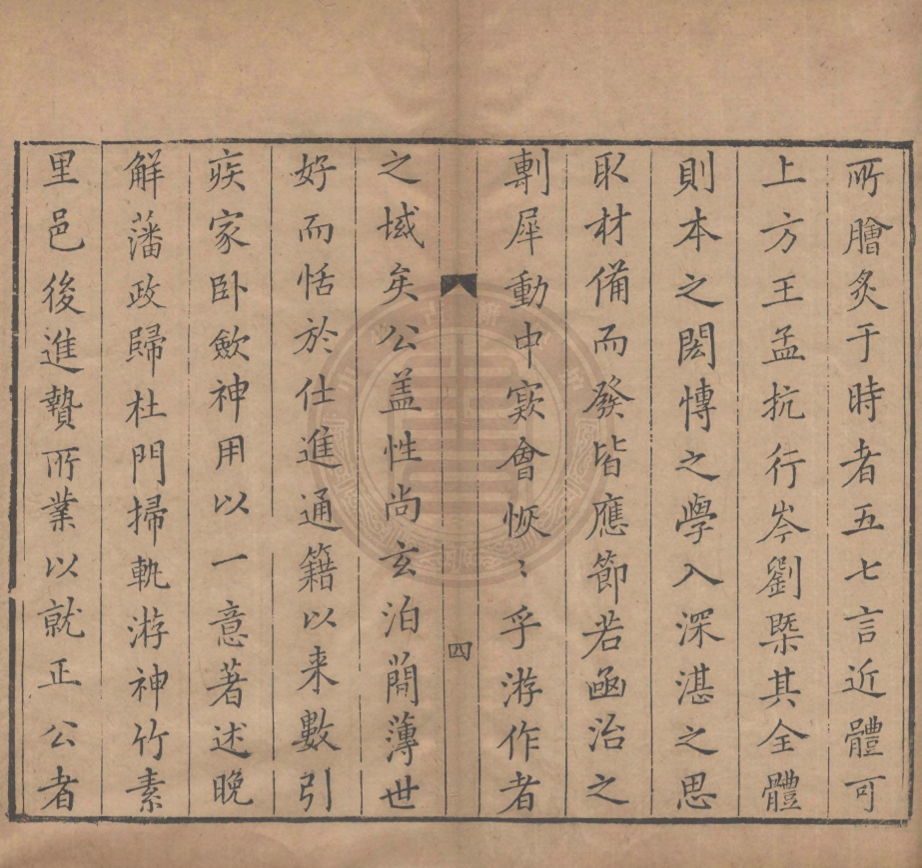 所膾炙于時者五七言近體可
上方王孟抗行岑劉槩其全體
則本之閎博之學入深湛之思
取材備而發皆應節若函治之
剸犀動中窾會恢〻乎游作者
四
之域矣公盖性尚玄泊簡薄世
好而恬於仕進通籍以来數引
疾家卧歛神用以一意著述晚
解藩政歸杜門掃軌游神竹素
里邑後進贄所業以就正公者